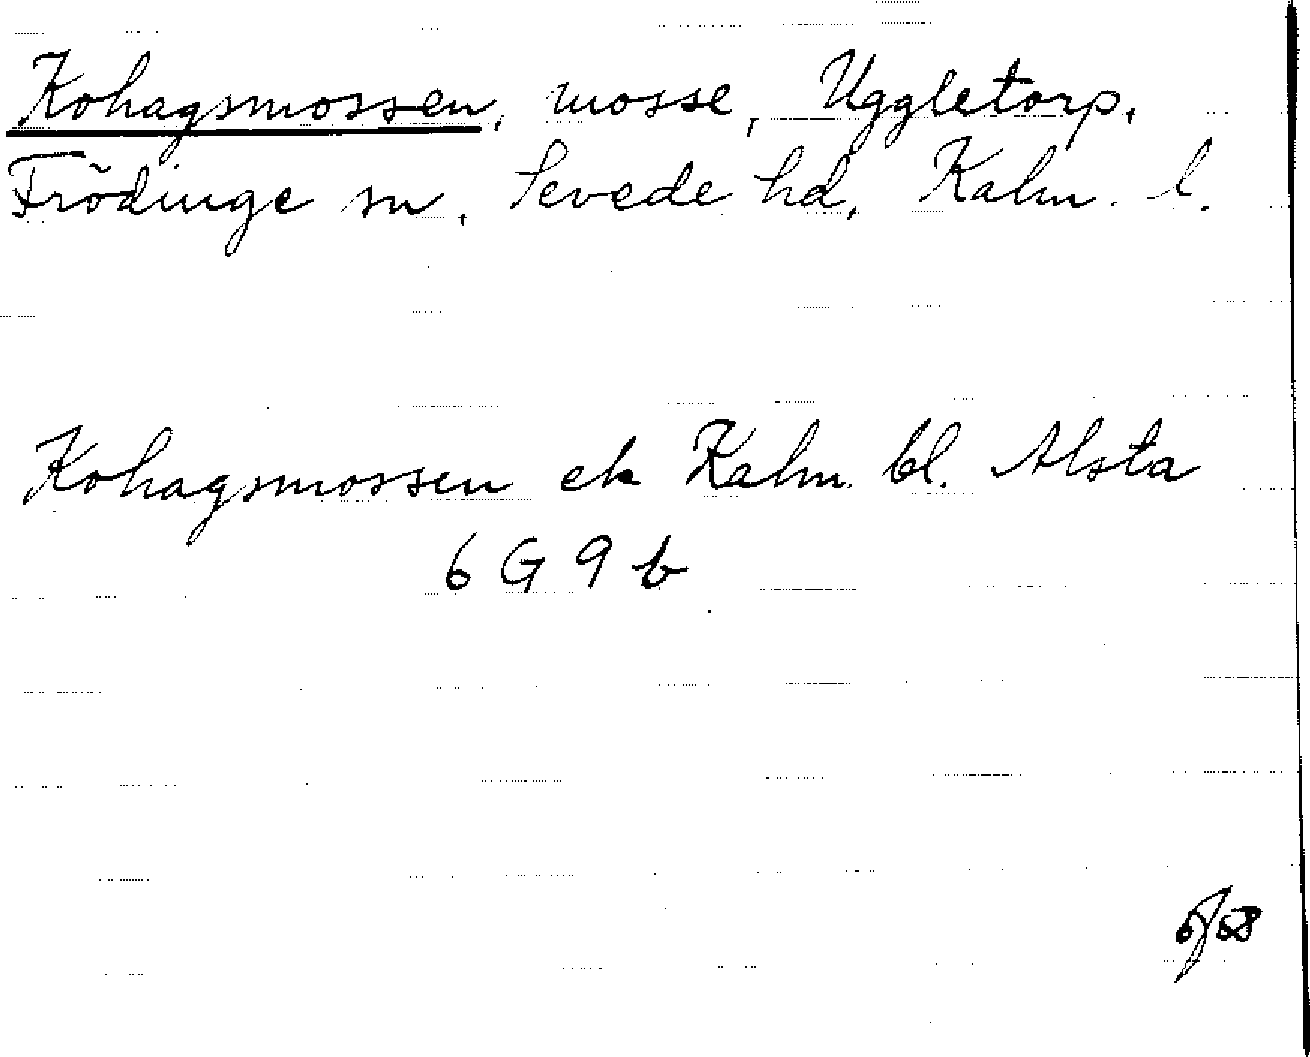 Kohagsmossen, mosse, Uggletorp,
Frödinge sn, Sevede hd, Kalm. l.
Kohagsmossen ek Kalm. bl. Alsta
6 G 9 b
6/68